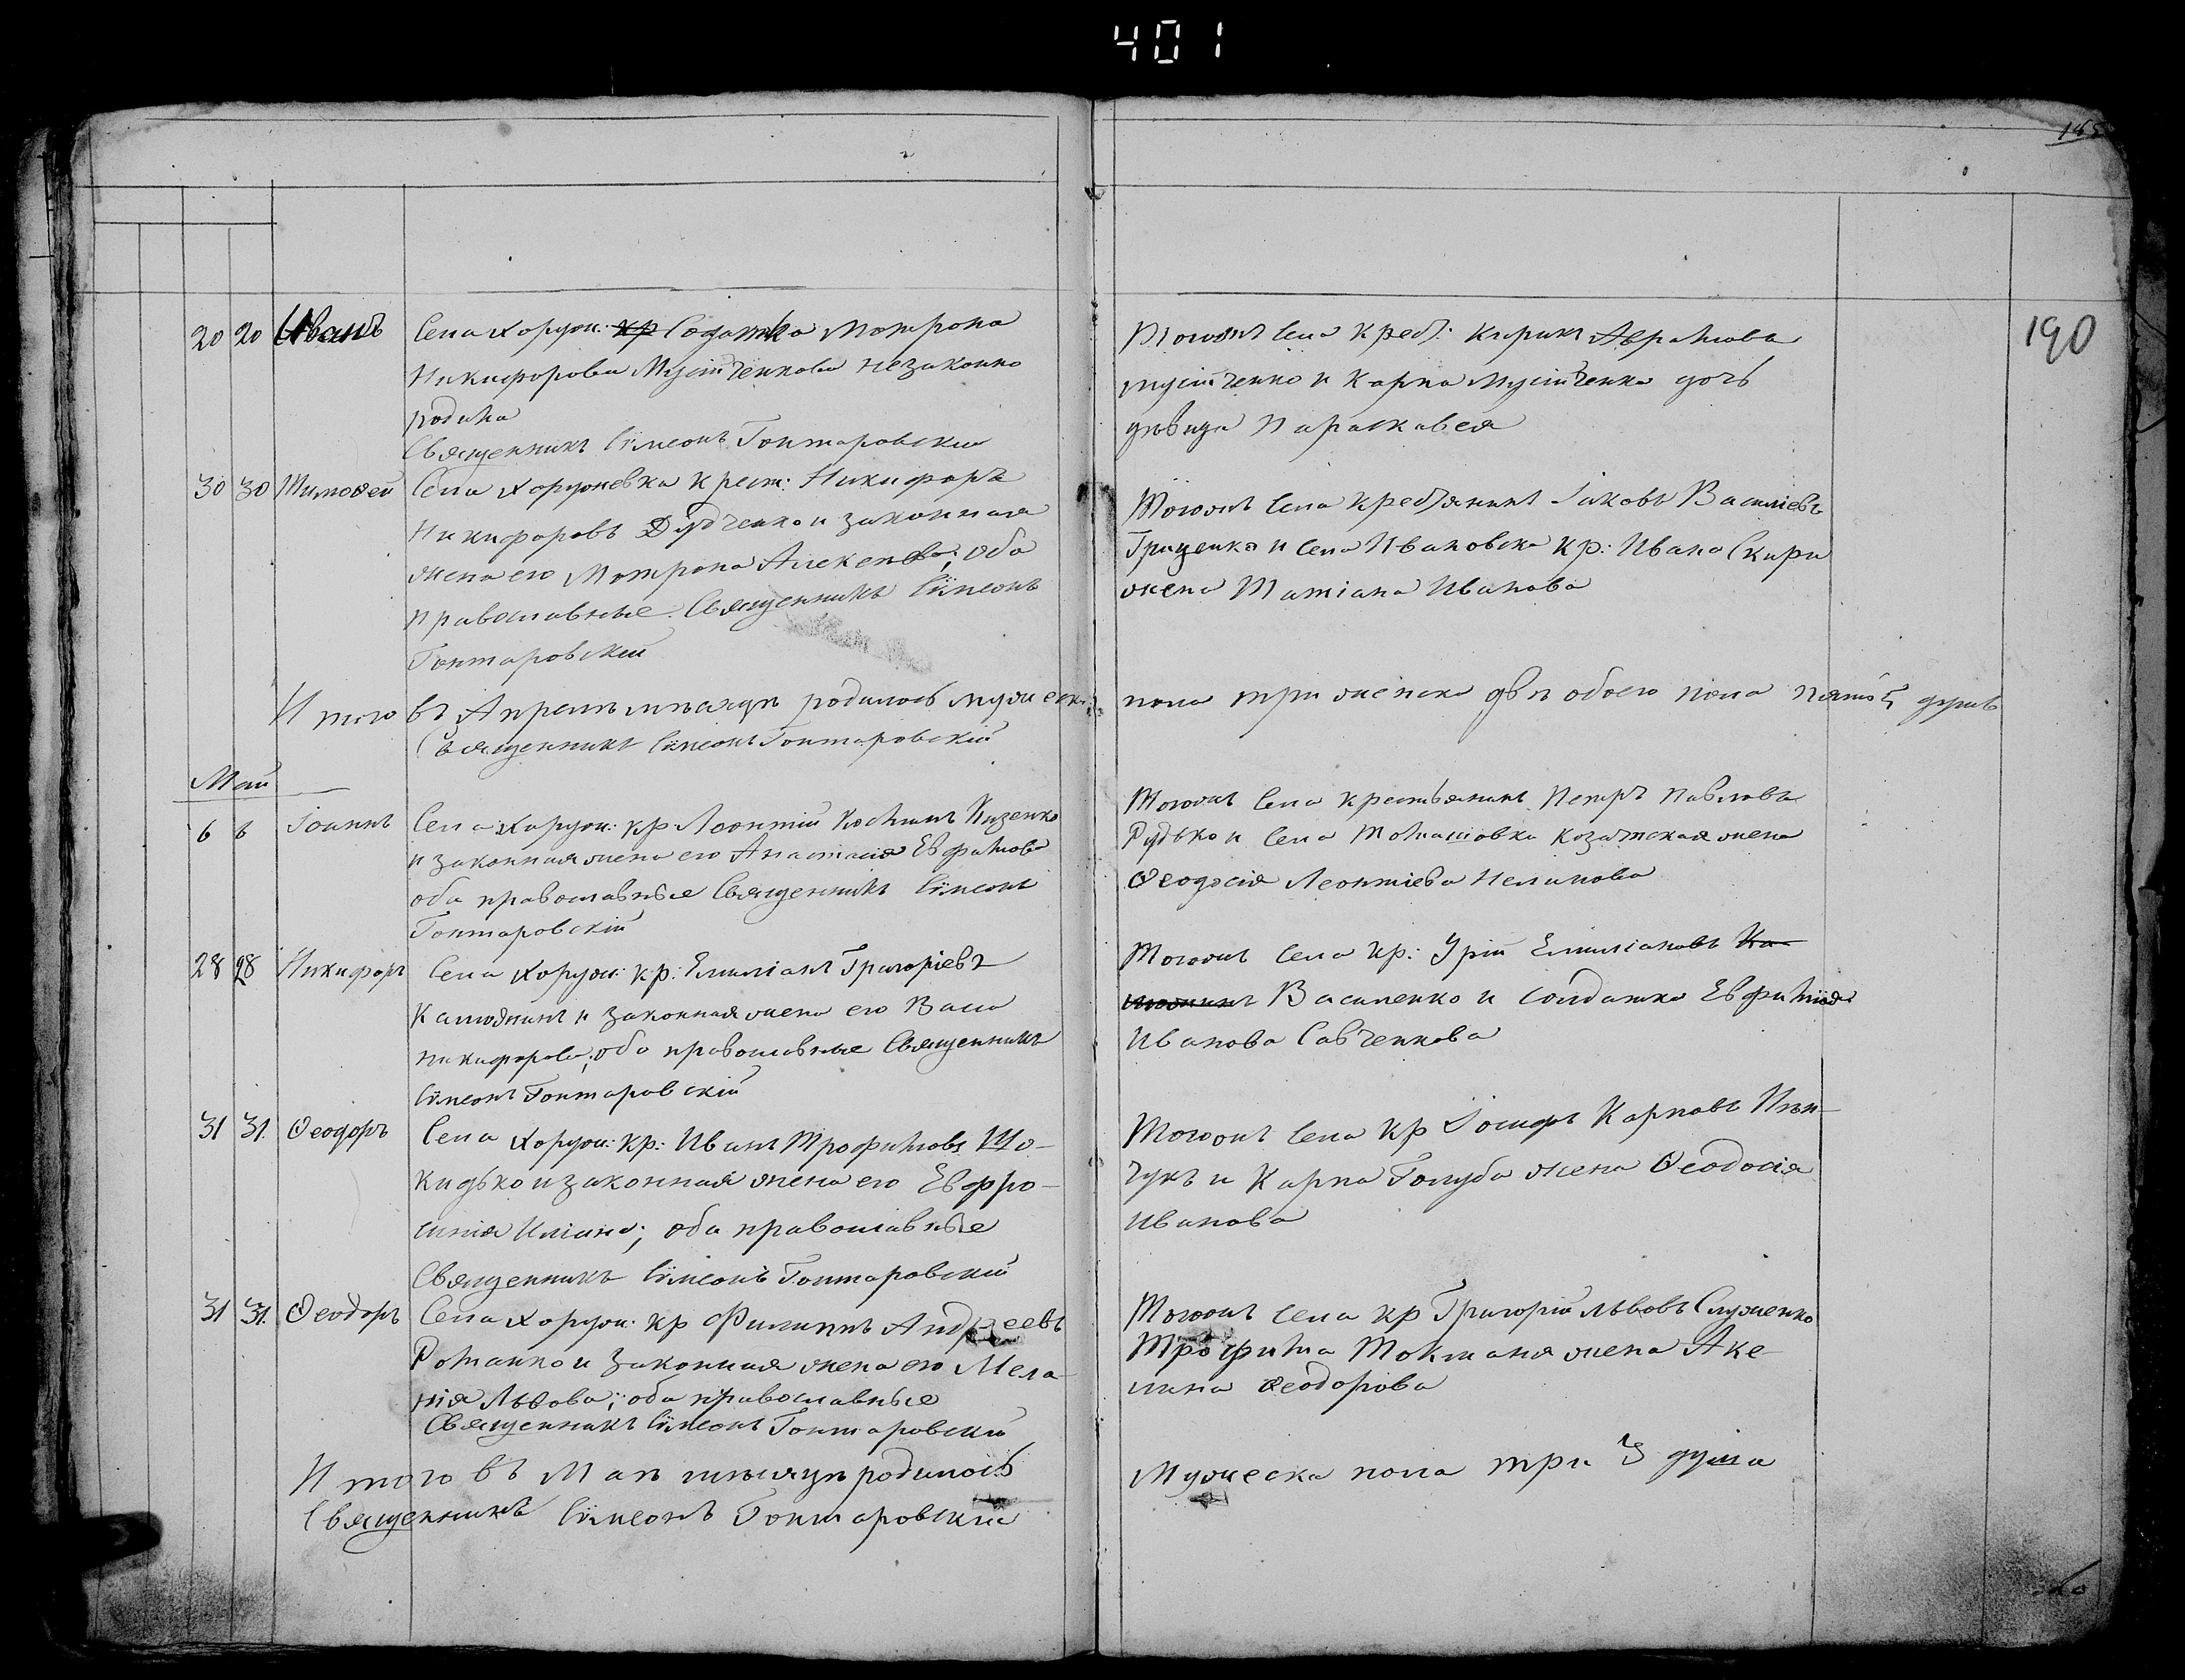 401
190
20 20 Иванъ Села Хоруж: кр Солдатка Мотрона
Никифорова Мустченкова незаконно
родила
Священникъ Сѵмеонъ Гонтаровскій
Тогожъ села крест: Кирикъ Аврамовъ
Мустченко и Карпа Мустченка дочь
дѣвица Параскавея
30 30 Тимофей Села Хоружевка крест: Никифоръ
Никифоровъ Дудченко и законная
жена его Мотрона Алексѣева; оба
православные. Священникъ Сѵмеонъ
Гонтаровскій
Тогожъ села крестьянинъ Іаковъ Василіевъ
Гриценко и села Ивановска кр: Ивана Скири
жена Татіана Иванова
Итого въ Апрелѣ мѣсяцѣ родилось мужеска
пола три женска двѣ обоего пола пять 5 душъ
Священникъ Сѵмеонъ Гонтаровскій
Май
6 6 Іоаннъ Села Хоруж: кр Леонтій Косминъ Кизенко
и законная жена его Анастасія Евфимова
оба православные Священникъ Сѵмеонъ
Гонтаровскій
Тогожъ села крестьянинъ Петръ Павловъ
Рудько и села Томашовка козатская жена
Ѳеодосія Леонтіева
28 28 Никифоръ Села Хоруж: кр: Емиліанъ Григоріевъ
и законная жена его Васса
Никифорова; оба православные Священникъ
Сѵмеонъ Гонтаровскій
Тогожъ села кр: Урій Емиліановъ Ка-
Василенко и солдатка Евфимія
Иванова Савченкова
31 31. Ѳеодоръ Села Хоруж: кр: Иванъ Трофимовъ Шо-
кидько и законная жена его Евфро-
синія; оба православные
Священникъ Сѵмеонъ Гонтаровскій
Тогожъ села кр Іосифъ Карповъ Пин-
чукъ и Карпа Голуба жена Ѳеодосія
Иванова
31 31. Ѳеодоръ Села Хоруж: кр Филиппъ Андреевъ
Романко и законная жена его Мела-
нія Львова; оба православные
Священникъ Сѵмеонъ Гонтаровскій
Тогожъ села кр Григорій Львовъ Служенко
Трофима Токманя жена Аке-
лина Ѳеодорова
Итого въ Маѣ мѣсяцѣ родилось
Мужеска пола три 3 души
Священникъ Сѵмеонъ Гонтаровскій